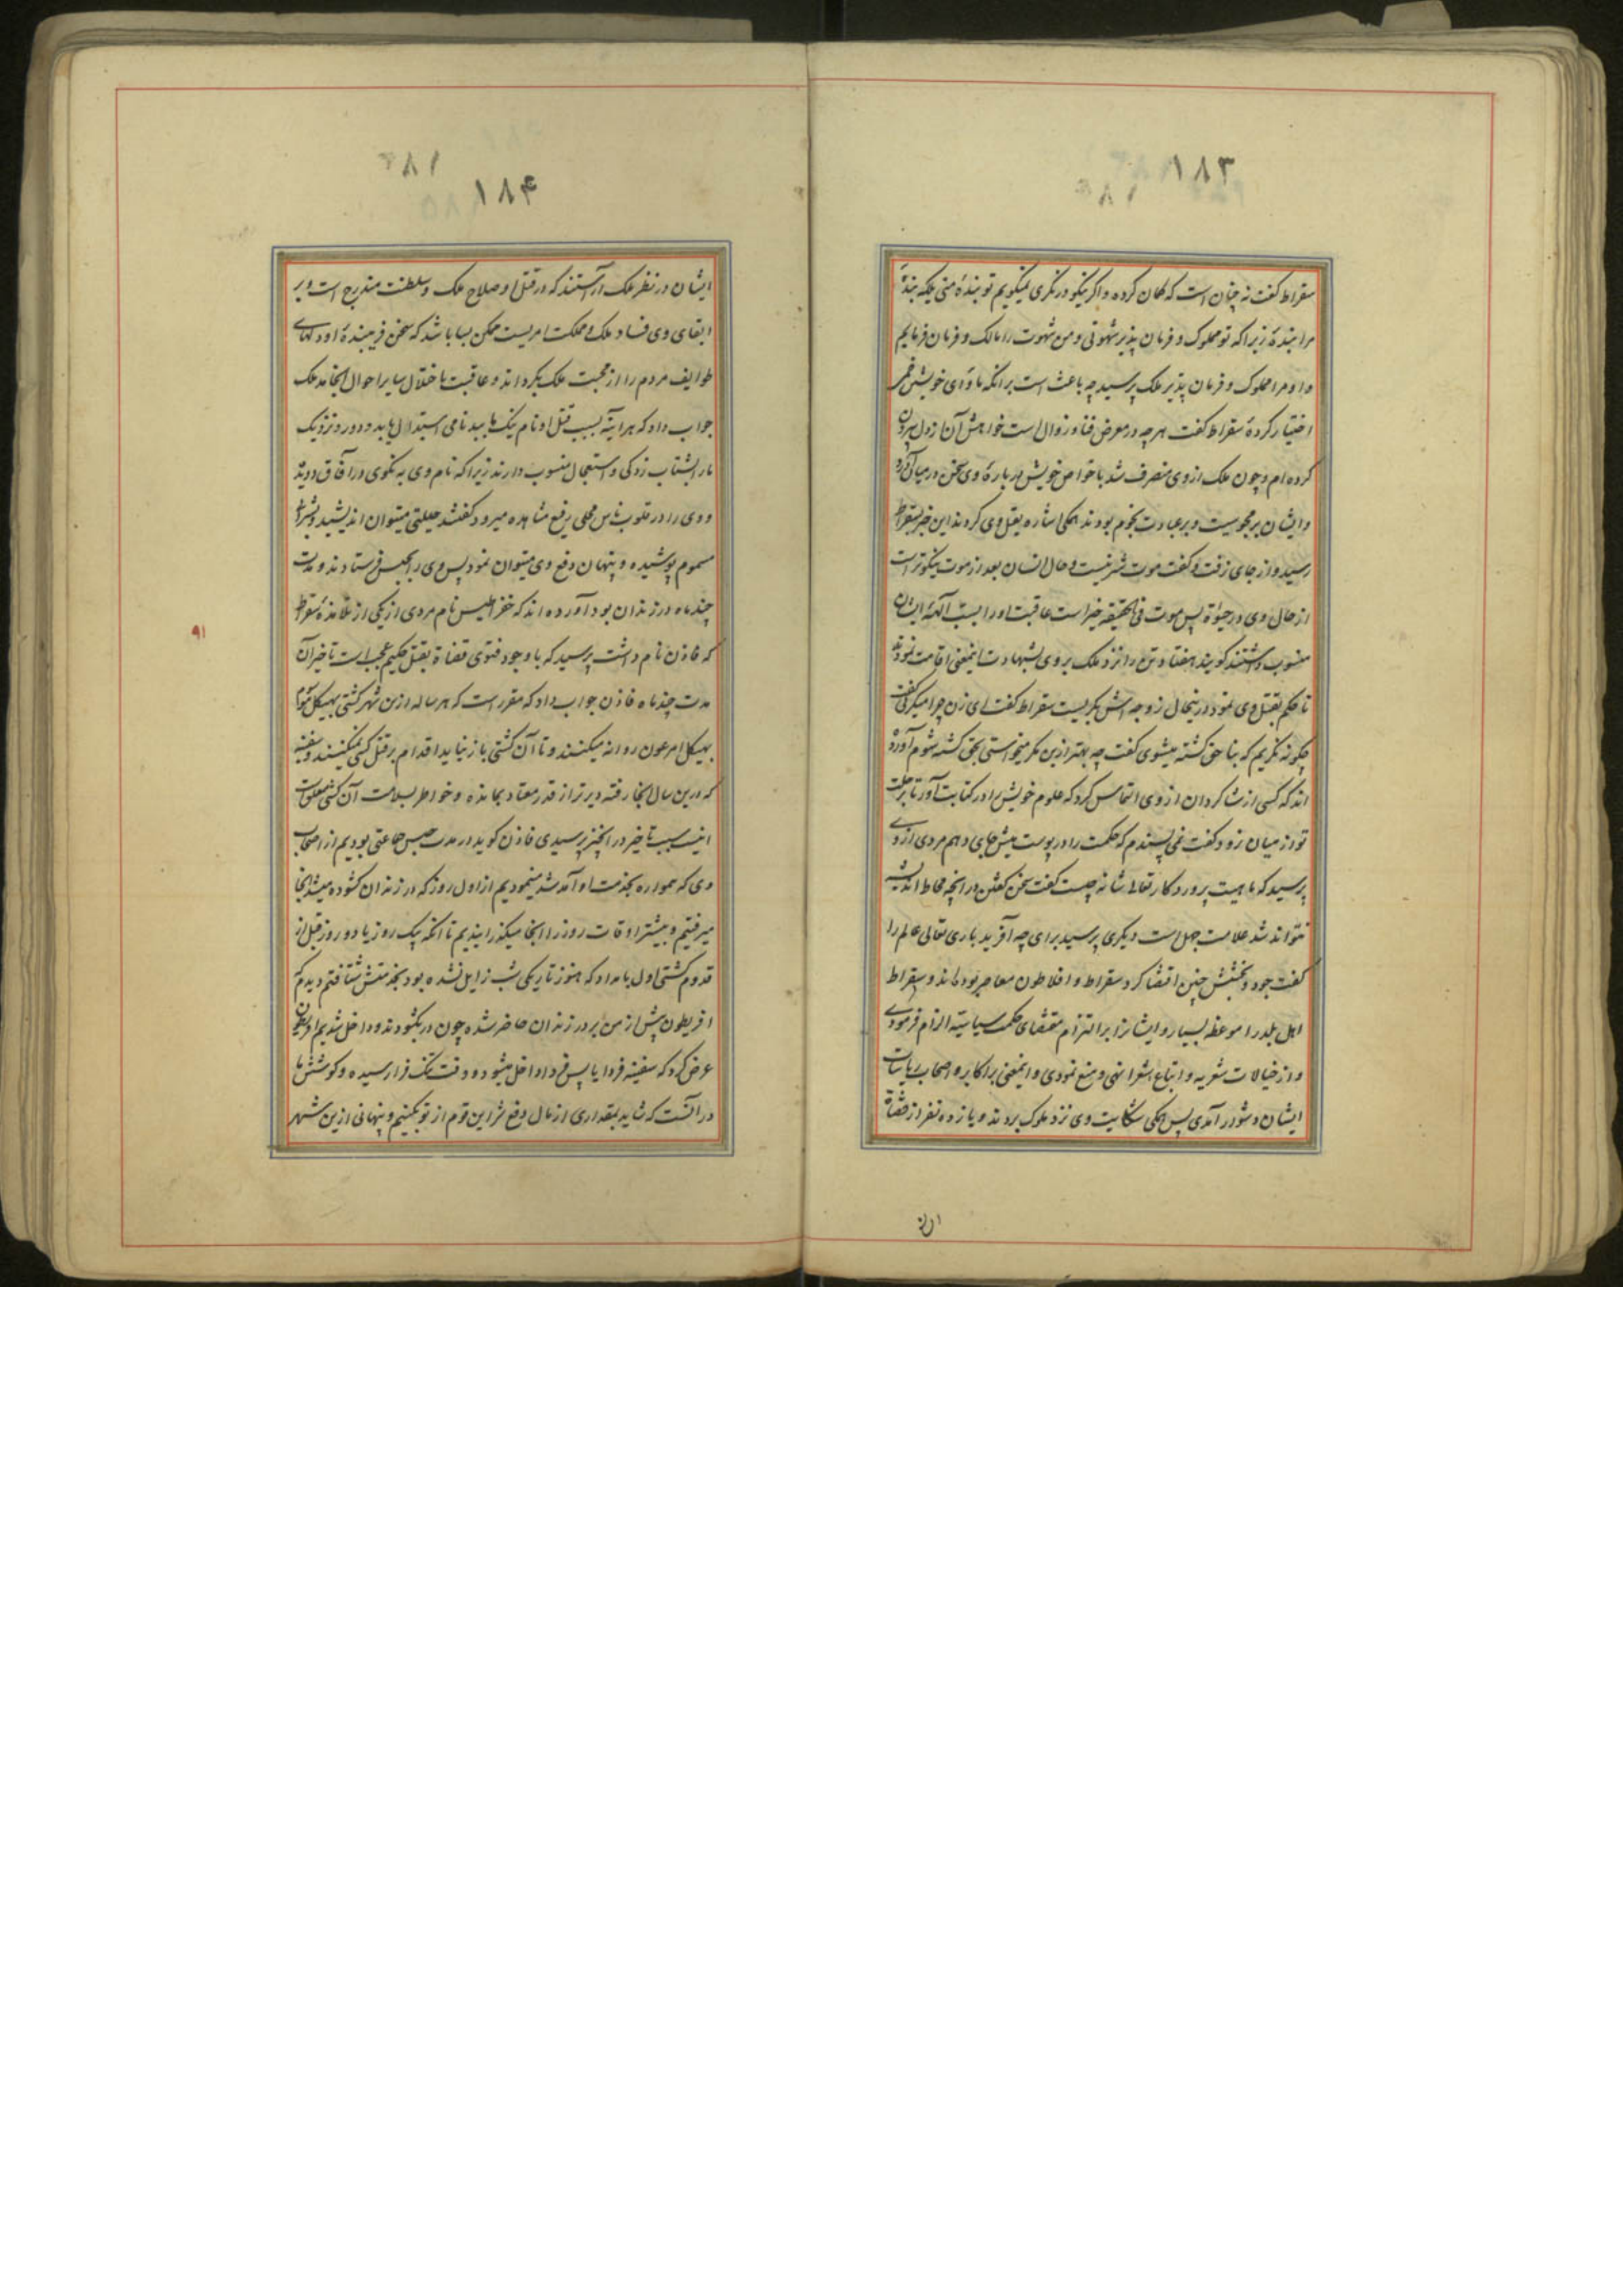 ۱۸۳
سقراط گفت نه چنان است که گمان کرده و اگر نیکو در نگری نمیگویم تو بندهٔ منی بلکه بندهٔ
مرا بندهٔ زیرا که تو مملوک و فرمان پذیر شهوتی و من شهوت را مالک و فرمان فرمایم
و او مرا مملوک و فرمان پذیر ملک پرسید چه باعث است بر انکه ماوای خویش
اختیار کردهٔ سقراط گفت هر چه در معرض فنا و زوال است خواهش آن از دل بیرون
کرده ام و چون ملک از وی منصرف شد با خواص خویش در بارهٔ وی سخن در میان آورد
و ایشان بر مجوسیت و بر عبادت نجوم بودند همگی اشاره بقتل وی کردند این خبر بسقراط
رسید و از جای نرفت و گفت موت شر نیست و حال انسان بعد از موت نیکوتر است
از حال وی در حیوة پس موت فی الحقیقه خیر است عاقبت او را بسب آلهه ایشان
منسوب داشتند گویند هفتاد تن را نزد ملک بر وی بشهادت اینمعنی اقامت نمودند
تا حکم بقتل وی نمود درینحال زوجه اش بگریست سقراط گفت ای زن چرا میگریی گفت
چگونه نگریم که بنا حق کشته میشوی گفت چه بهتر ازین مگر میخواستی بحق کشته شوم آورده
اند که کسی از شاگردان از وی التماس کرد که علوم خویش را در کتابت آور تا برحلت
تو از میان نرود گفت نمی پسندم که حکمت را در پوست میش جای دهم مردی از وی
پرسید که ماهیت پروردگار تعالی شانه چیست گفت سخن گفتن در انچه محاط اندیشه
نتواند شد علامت جهل است دیگری پرسید برای چه آفرید باری تعالی عالم را
گفت جود و بخشش چنین اقتضا کرد سقراط و افلاطون معاصر بوده‌اند و سقراط
اهل بلد را موعظه بسیار و ایشانرا بر التزام مقتضای حکمت سیاسیه الزام فرمودی
و از خیالات شعریه و اتباع شعرا نهی و منع نمودی و اینمعنی بر اکابر و اصحاب ریاسات
ایشان دشوار آمدی پس همگی شکایت وی نزد ملوک بردند و یازده نفر از قضاة
ایشان
۱۸۴
ایشان در نظر ملک آراستند که در قتل او صلاح ملک و سلطنت مندرج است و بر
ابقای وی فساد ملک و مملکت امریست ممکن بسا باشد که سخن فریبندهٔ او دلهای
طوایف مردم را از محبت ملک بگرداند و عاقبت باختلال سایر احوال انجامد ملک
جواب داد که هر اینه بسبب قتل او نام نیک ما ببدنامی استبدال یابد و دور و نزدیک
ما را بشتاب زدگی و استعجال منسوب دارند زیرا که نام وی به نکوی در آفاق دویده
و وی را در قلوب ناس محلی رفیع مشاهده میرود گفتند حیلتی میتوان اندیشید و بشربت
مسموم پوشیده و پنهان دفع وی میتوان نمود پس وی را بحبس فرستادند و مدت
چند ماه در زندان بود آورده اند که خفراطیس نام مردی از یکی از تلامذهٔ سقراط
که فاذن نام داشت پرسید که با وجود فتوی قضاة بقتل حکیم عجب است تاخیر آن
مدت چند ماه فاذن جواب داد که مقرر است که هر ساله ازین شهر کشتی بهیکل موسوم
بهیکل امرعون روانه میکنند و تا آن کشتی باز نیاید اقدام بر قتل کسی نمیکنند و سفینه
که درین سال انجا رفته دیرتر از قدر معتاد بمانده و خواطر بسلامت آن کشتی متعلق است
اینست سبب تاخیر در انچه پرسیدی فاذن گوید در مدت حبس جماعتی بودیم از اصحاب
وی که همواره بخدمت او آمد شد مینمودیم از اول روز که در زندان گشوده میشد انجا
میرفتیم و بیشتر اوقات روز را انجا میگذرانیدیم تا انکه یک روز یا دو روز قبل از
قدوم کشتی اول بامداد که هنوز تاریکی شب زایل نشده بود بخدمتش شتافتم دیدم که
افریطون پیش از من بر در زندان حاضر شده چون در بگشودند و داخل شدیم افریطون
عرض کرد که سفینه فردا یا پس فردا داخل میشود و وقت تنگ فرا رسیده و کوشش ما
در آنست که شاید بمقداری از مال دفع شر این قوم از تو بکنیم و پنهانی ازین شهر
۹۱